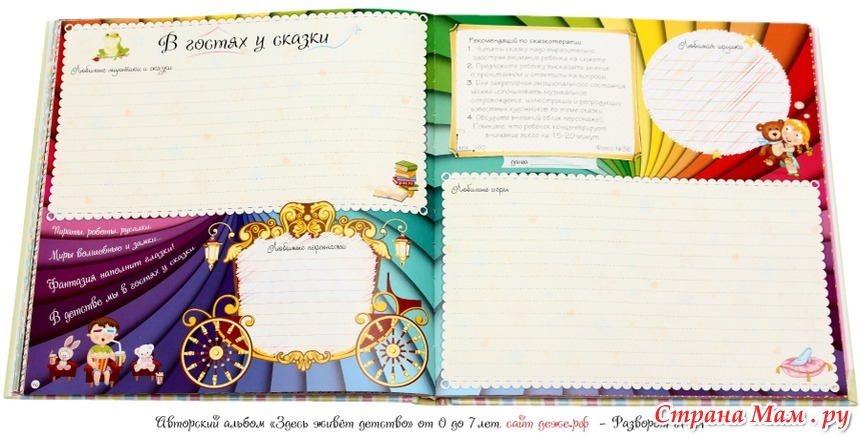 В гостях у сказки
Любимые мультики и сказки
Пираты, роботы, русалки,
Миры волшебные и замки...
Фантазия наполнит глазки!
В детстве мы в гостях у сказки
Любимые персонажи
Рекомендации по сказкотерапии
1. Читать сказку надо выразительно,
заостряя внимание ребенка на сюжете
2. Предложите ребенку высказать мнение
о прочитанном и ответить на вопросы
3. Для закрепления эмоционального состояния
можно использовать музыкальное
сопровождение, иллюстрации и репродукции
известных художников по теме сказки.
4. Обсудите внешний облик персонажей.
Помните, что ребенок концентрирует
внимание всего на 15-20 минут
Фото №36
дата
Любимая игрушка
Любимые игры
Авторский альбом «Здесь живёт детство» от 0 до 7 лет. сайт деже.рф - Разворот
Страна Мам.ру